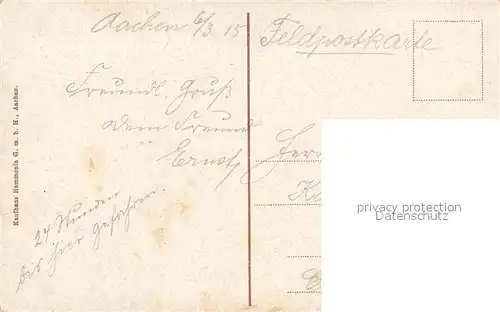 Aachen 6/3 15
Feldpostkarte
Freundl. Gruß
Dein Freund
Ernst
24 Stunden
bis hier gefahren.
Kaufhaus Hammonia G. m. b. H., Aachen.
Herr
privacy protection
Ansichtskartenversand